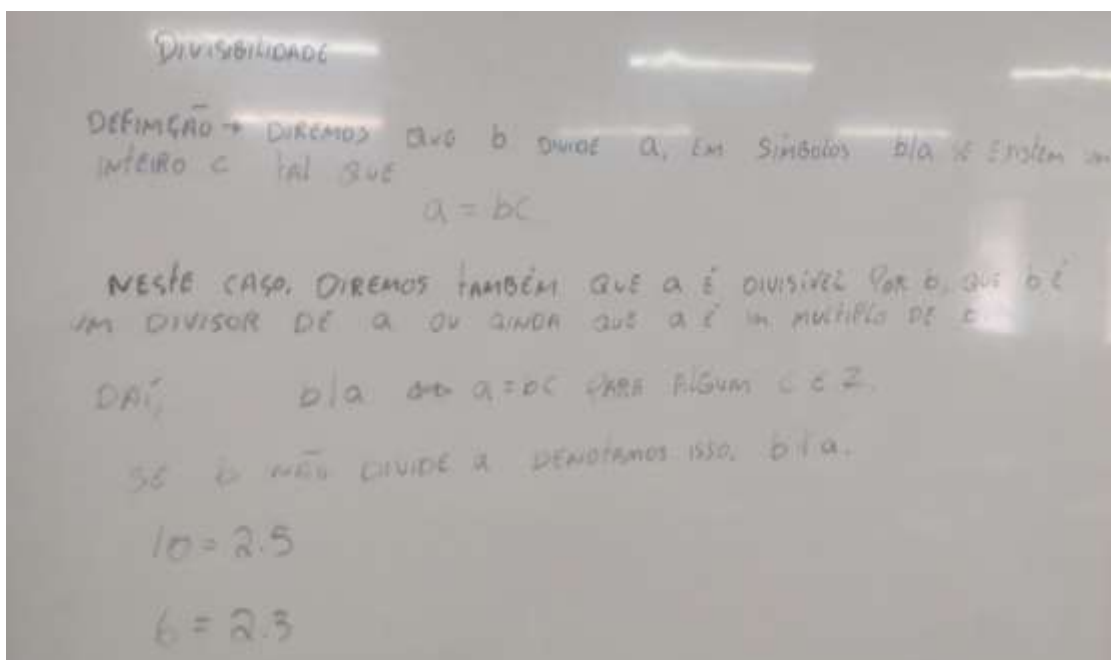 DIVISIBILIDADE
DEFINIÇÃO → DIREMOS QUE b DIVIDE a, EM SÍMBOLOS b|a SE EXISTEM um
INTEIRO c tal QUE
a = bc
NESTE CASO, DIREMOS TAMBÉM QUE a É DIVISÍVEL POR b, QUE b É
UM DIVISOR DE a OU AINDA QUE a É um MULTIPLO DE
DAÍ, b|a ⟺ a = bc PARA ALGUM c ∈ Z.
SE b NÃO DIVIDE a DENOTAMOS ISSO, b ∤ a.
10 = 2.5
6 = 2.3